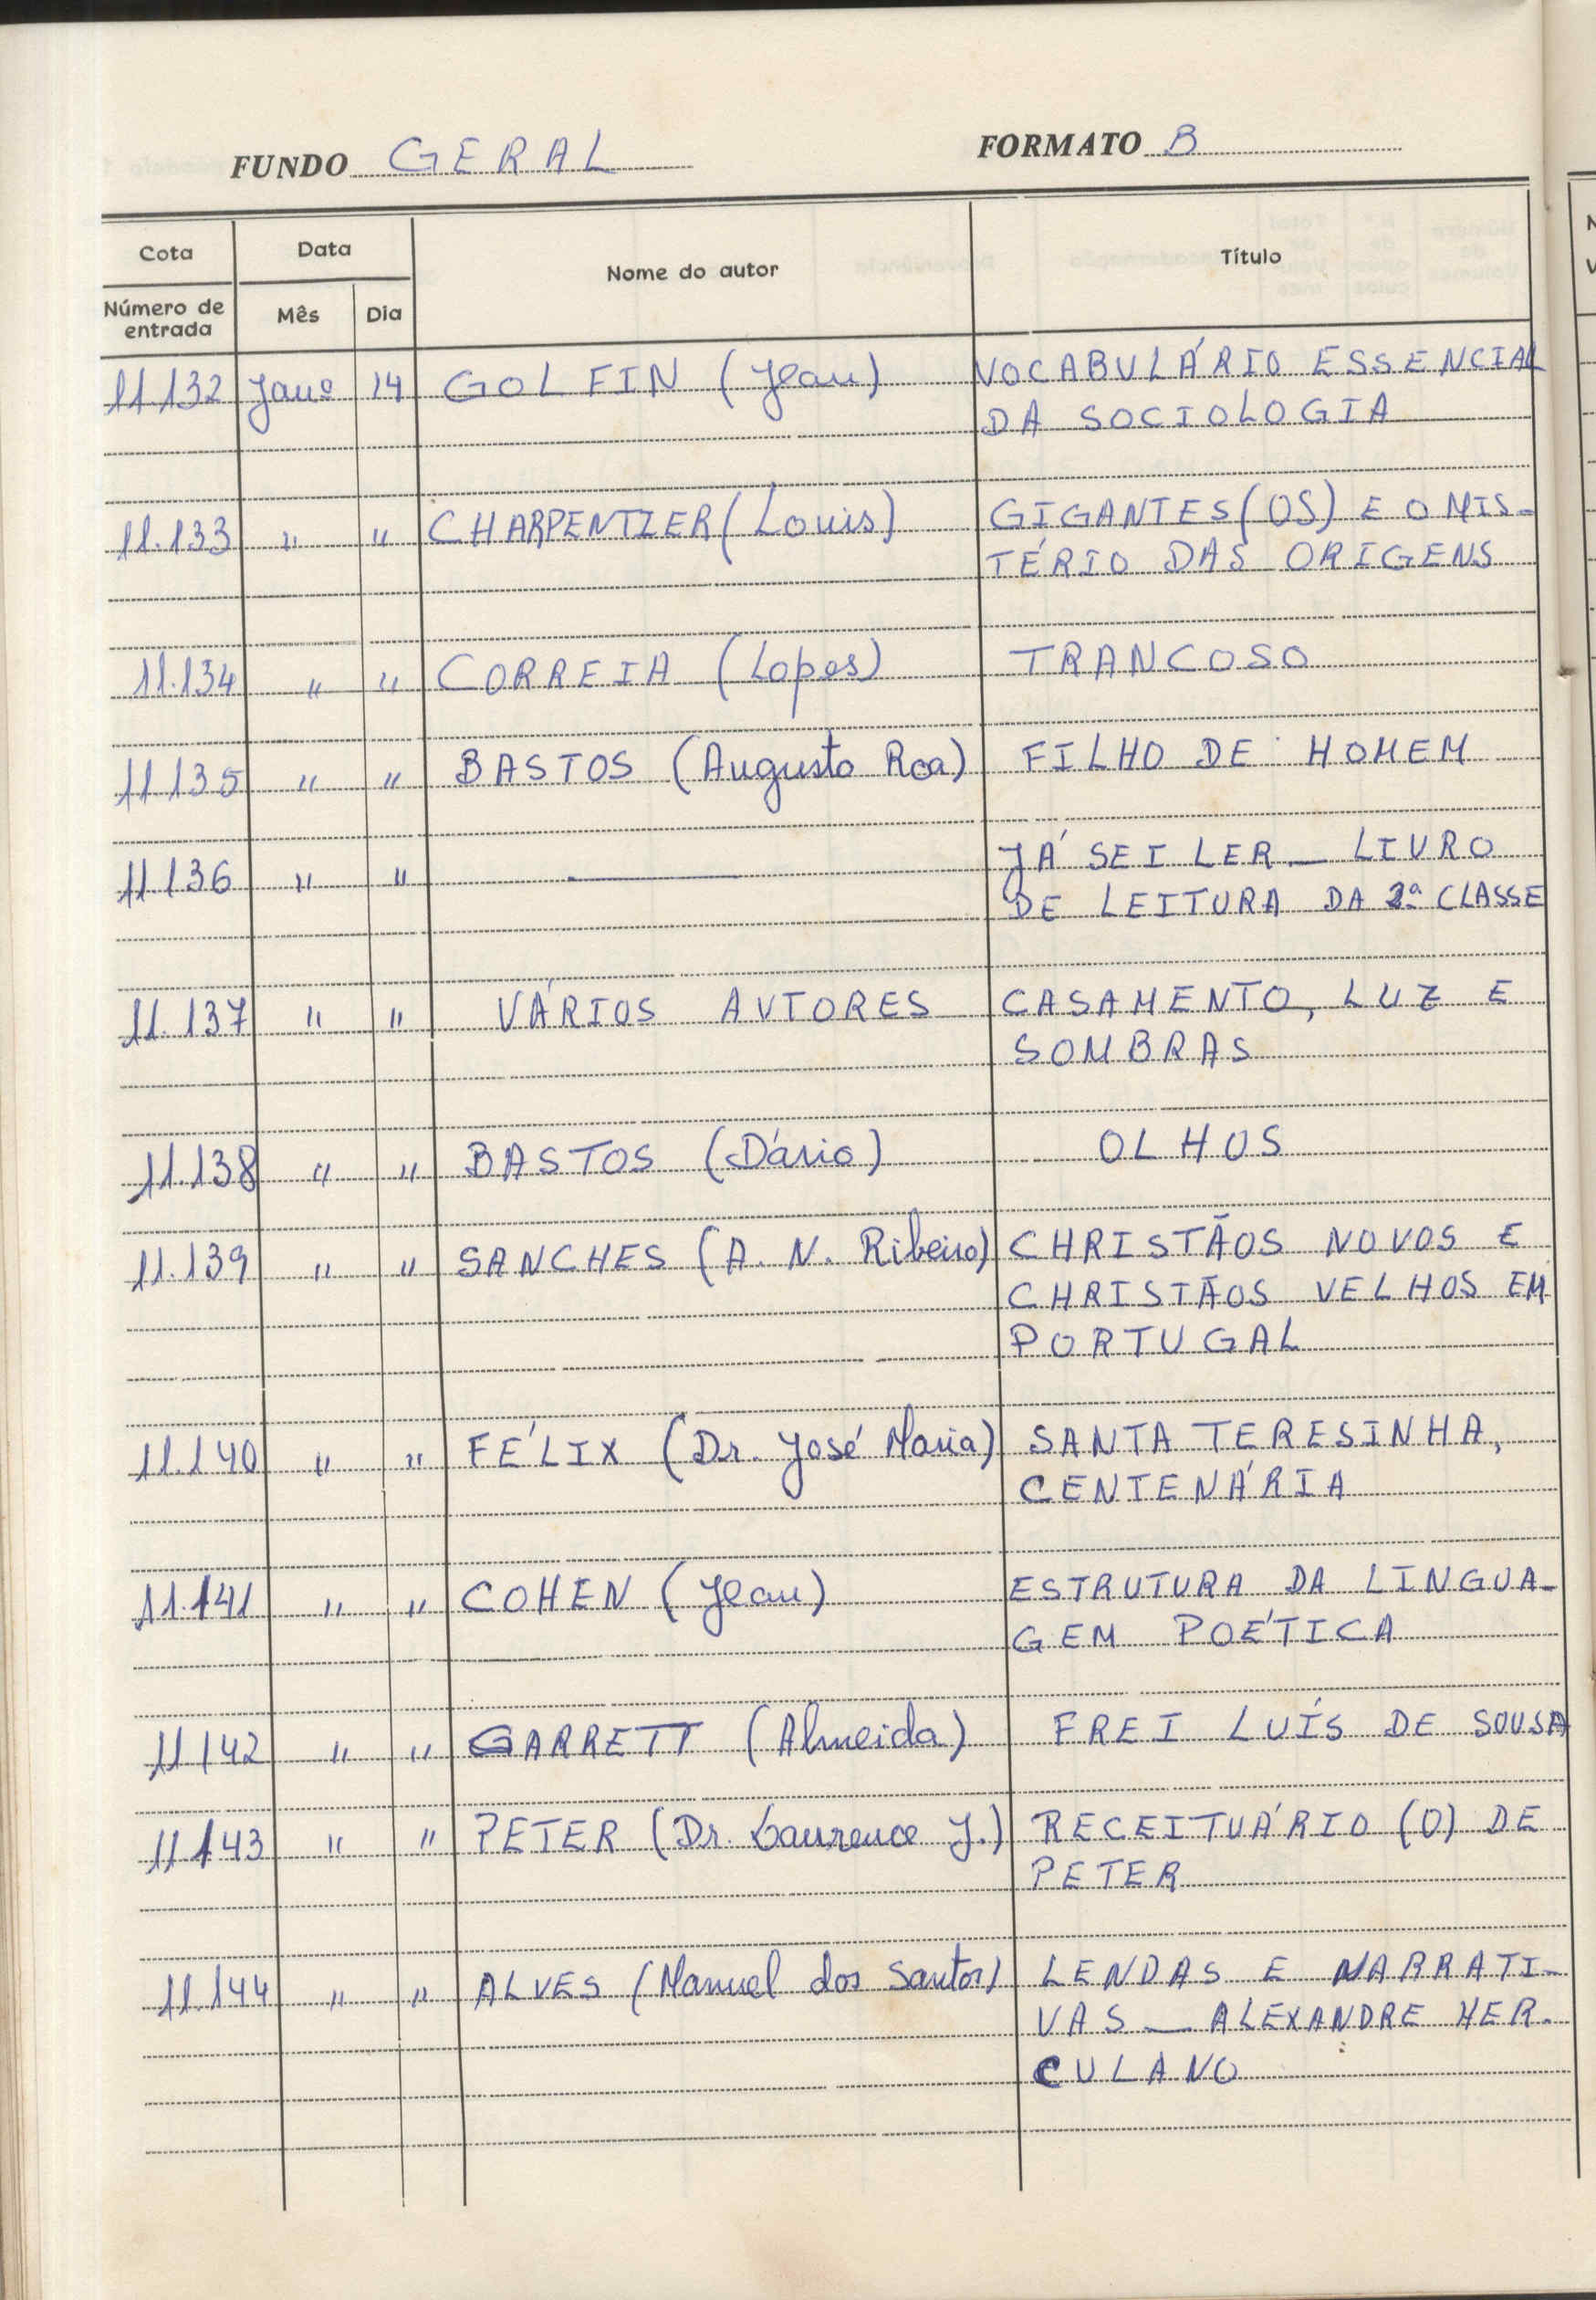 FUNDO GERAL FORMATO B
Cota Data Nome do autor Título
Número de entrada Mês Dia
11132 Janº 14 GOLFIN (Jean) VOCABULÁRIO ESSENCIAL
DA SOCIOLOGIA
11.133 " " CHARPENTIER (Louis) GIGANTES (OS) E O MIS-
TÉRIO DAS ORIGENS
11.134 " " CORREIA (Lopes) TRANCOSO
11135 " " BASTOS (Augusto Roa) FILHO DE HOMEM
11136 " " — JÁ SEI LER — LIVRO
DE LEITURA DA 2ª CLASSE
11.137 " " VÁRIOS AUTORES CASAMENTO, LUZ E
SOMBRAS
11.138 " " BASTOS (Dário) OLHOS
11.139 " " SANCHES (A. N. Ribeiro) CHRISTÃOS NOVOS E
CHRISTÃOS VELHOS EM
PORTUGAL
11.140 " " FÉLIX (Dr. José Maria) SANTA TERESINHA,
CENTENÁRIA
11.141 " " COHEN (Jean) ESTRUTURA DA LINGUA-
GEM POÉTICA
11142 " " GARRETT (Almeida) FREI LUÍS DE SOUSA
11143 " " PETER (Dr. Laurence J.) RECEITUÁRIO (O) DE
PETER
11.144 " " ALVES (Manuel dos Santos) LENDAS E NARRATI-
VAS — ALEXANDRE HER-
CULANO